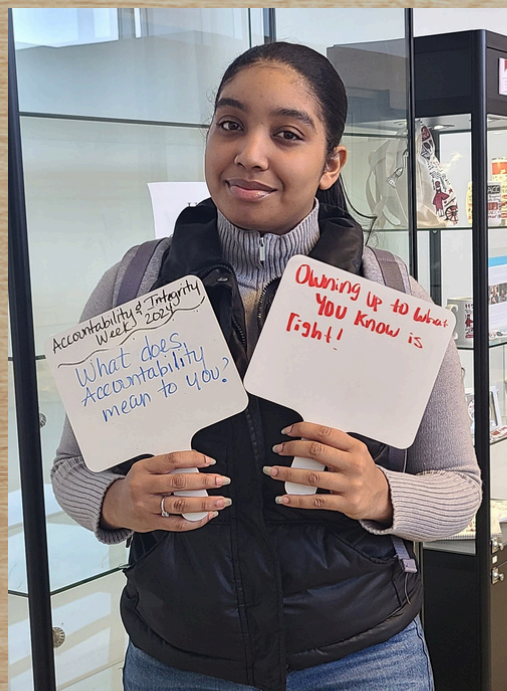 Accountability & Integrity
Week 2024
What does
Accountability
mean to you?
Owning up to what
You Know is
right!